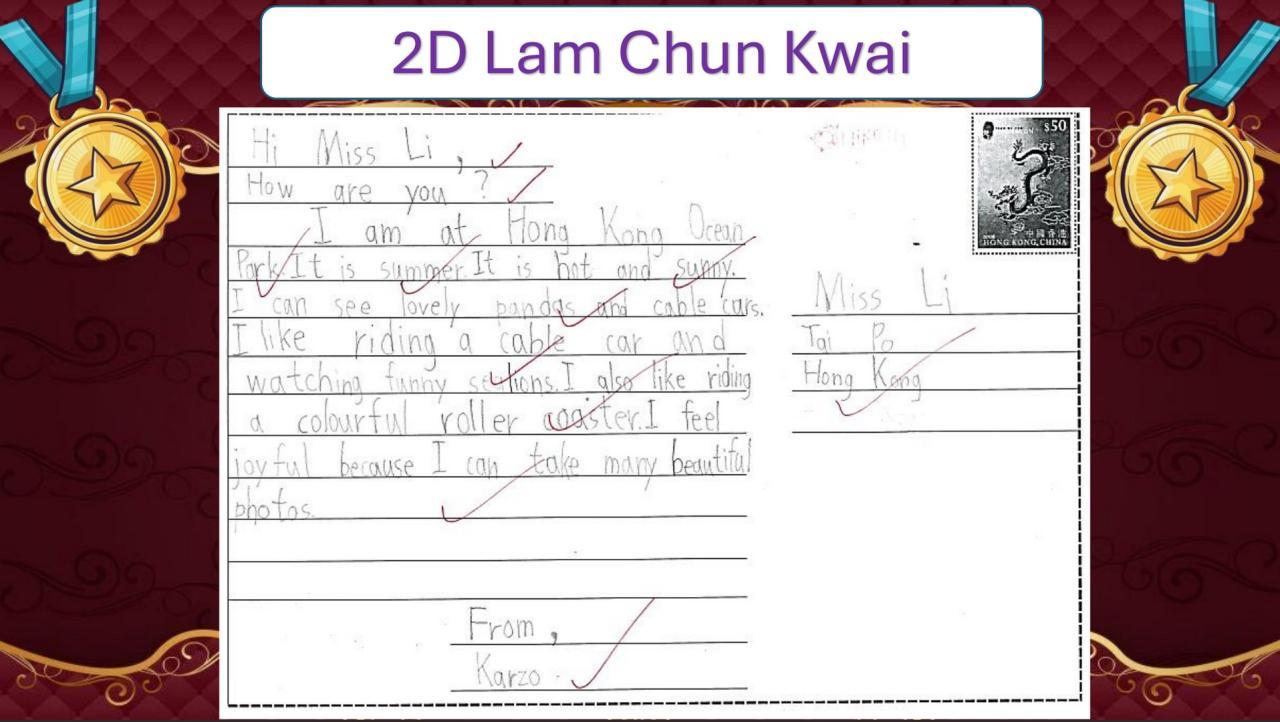 2D Lam Chun Kwai
Hi Miss Li,
How are you?
I am at Hong Kong Ocean
Park. It is summer. It is hot and sunny.
I can see lovely pandas and cable cars.
I like riding a cable car and
watching funny sealions. I also like riding
a colourful roller coaster. I feel
joyful because I can take many beautiful
photos.
From,
Karzo
$50
中國香港
HONG KONG, CHINA
Miss Li
Tai Po
Hong Kong